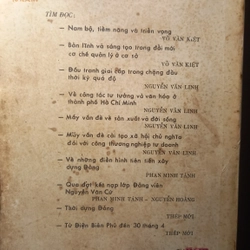 TÌM ĐỌC:
— Nam bộ, tiềm năng và triển vọng
VÕ VĂN KIỆT
— Bản lĩnh và sáng tạo trong đổi mới
cơ chế quản lý ở cơ sở
VÕ VĂN KIỆT
— Đấu tranh giai cấp trong chặng đầu
thời kỳ quá độ
NGUYỄN VĂN LINH
— Về công tác tư tưởng và văn hóa ở
thành phố Hồ Chí Minh
NGUYỄN VĂN LINH
— Mấy vấn đề về sản xuất và đời sống
NGUYỄN VĂN LINH
— Mấy vấn đề cải tạo xã hội chủ nghĩa
đối với công thương nghiệp tư doanh
NGUYỄN VĂN LINH
— Về những điển hình tiên tiến xây
dựng Đảng
PHAN MINH TÁNH
— Qua đợt kết nạp lớp Đảng viên
Nguyễn Văn Cừ
PHAN MINH TÁNH — NGUYỄN HOÀNG
— Thời dựng Đảng
THÉP MỚI
— Từ Điện Biên Phủ đến 30 tháng 4
THÉP MỚI